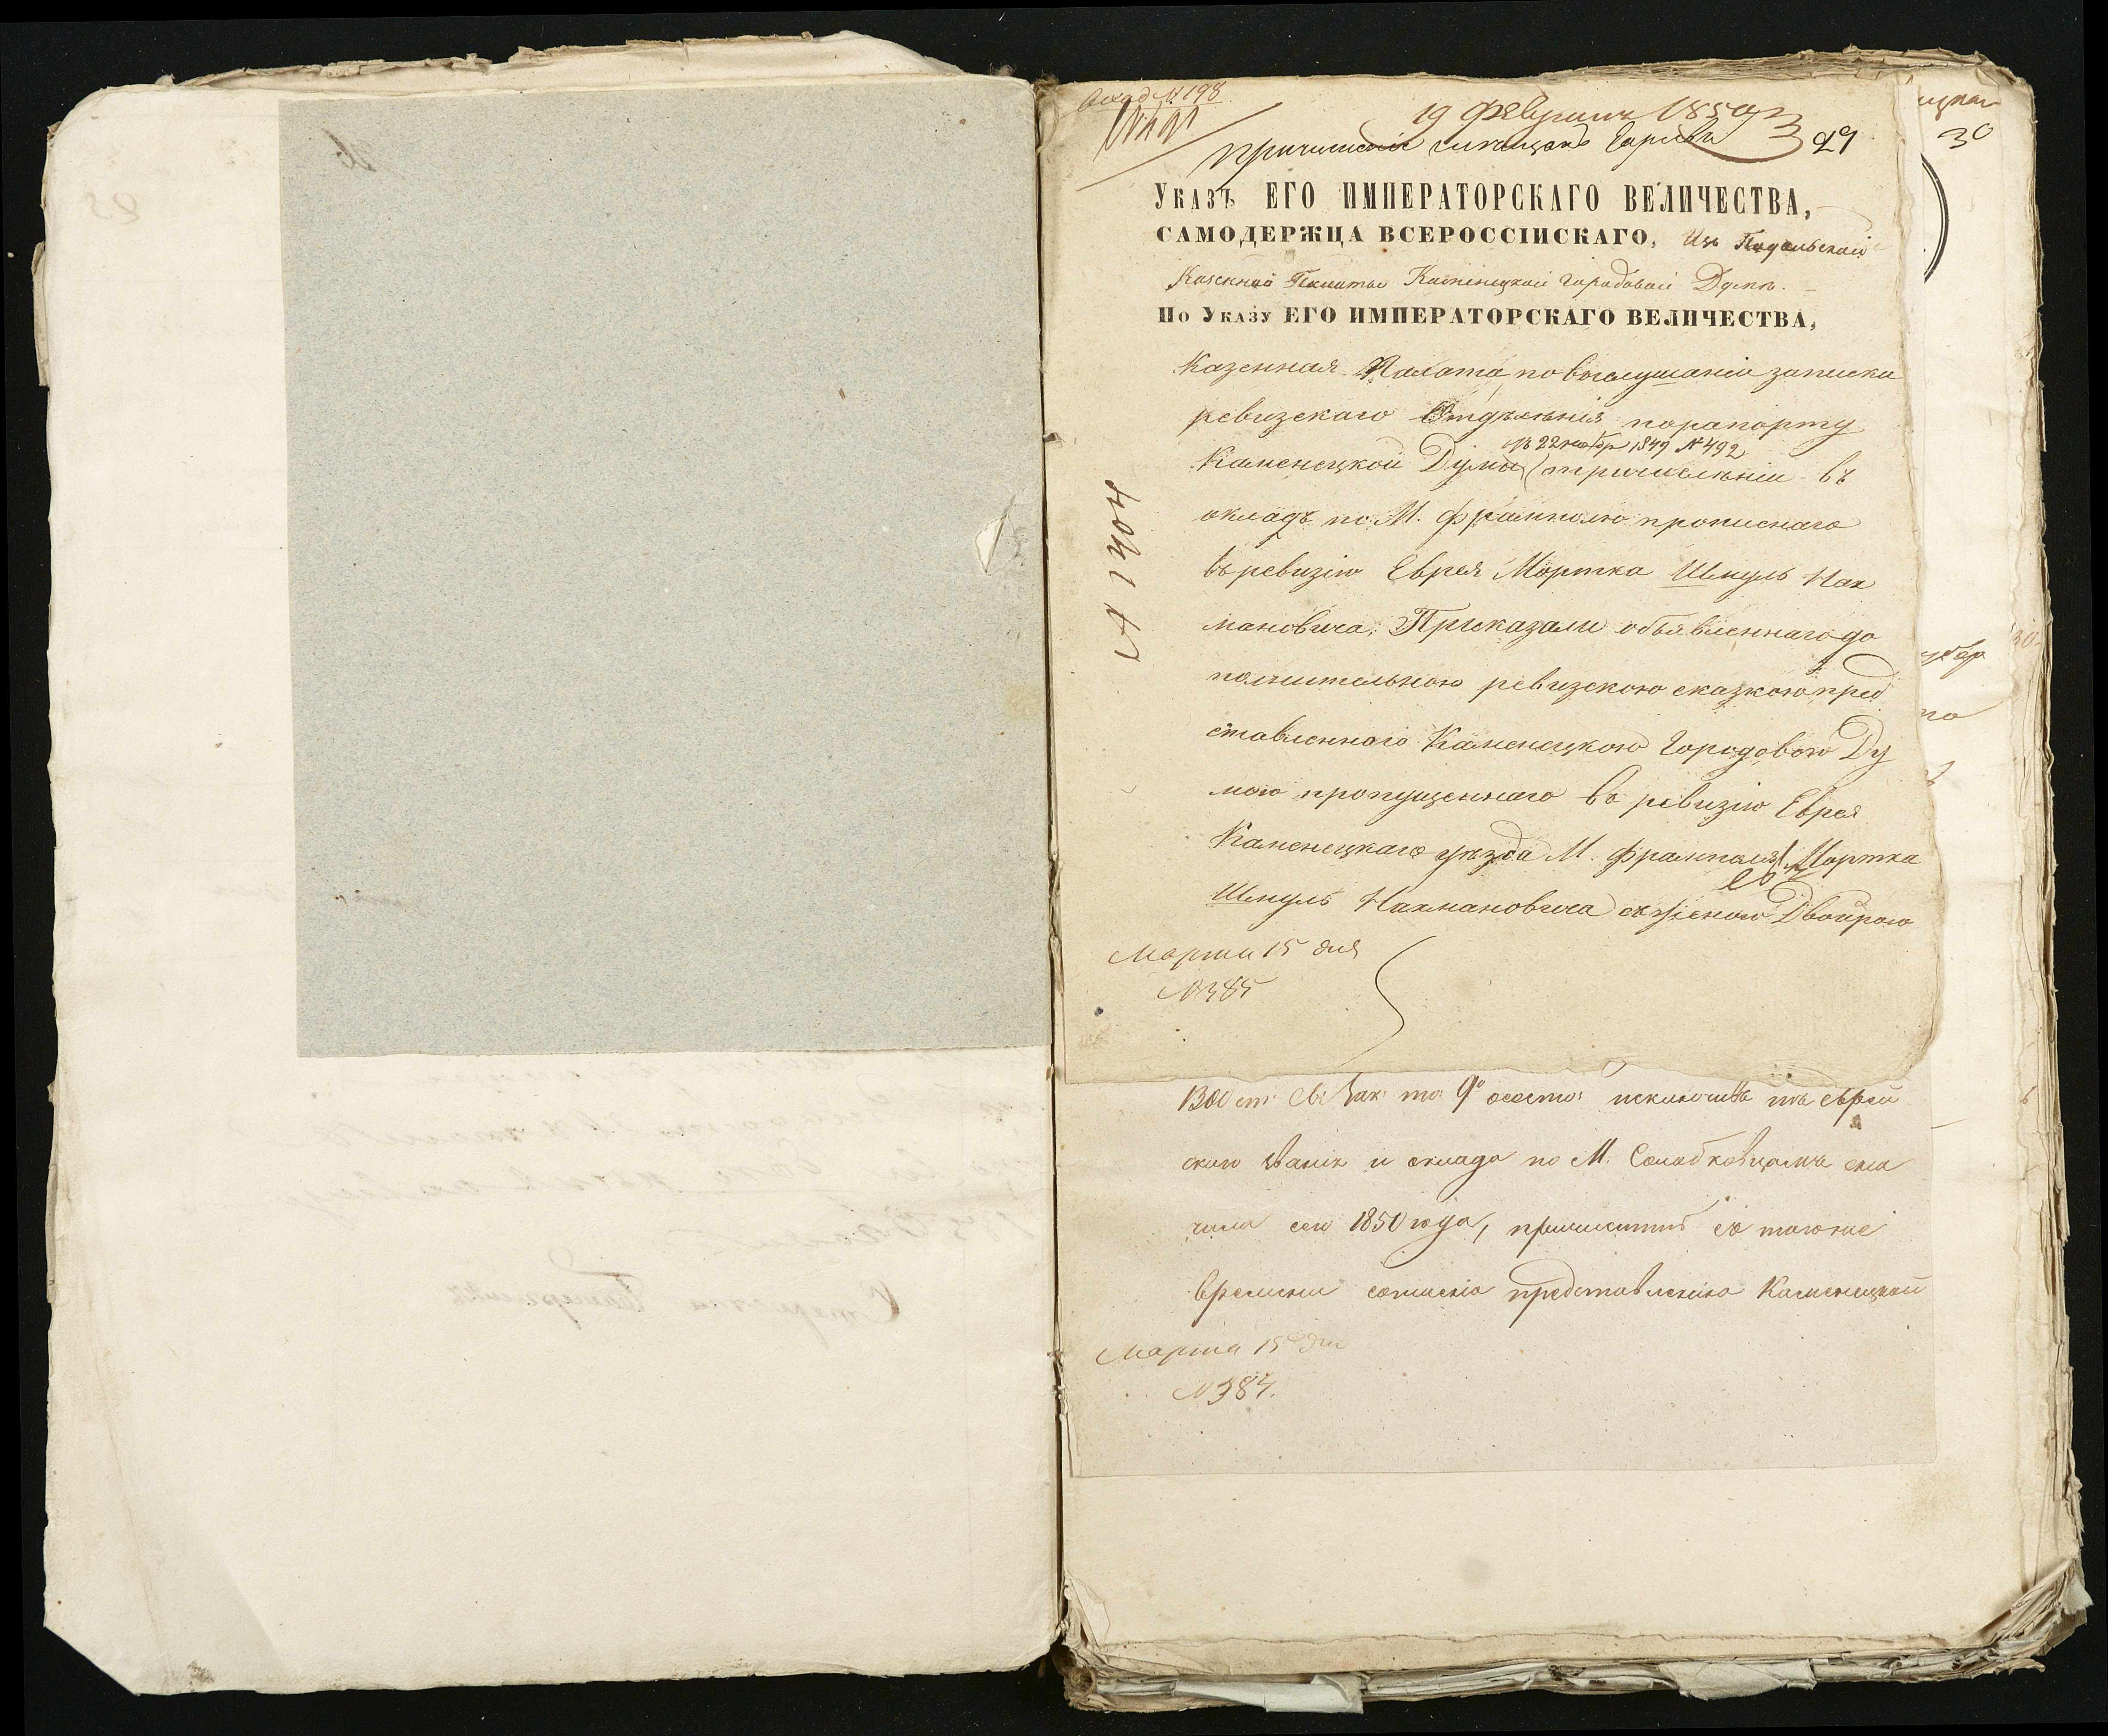 Вход № 198
19 Февраля 1850
29
30
Указъ ЕГО ИМПЕРАТОРСКАГО ВЕЛИЧЕСТВА,
САМОДЕРЖЦА ВСЕРОССІЙСКАГО, Изъ Подольской
Казенной Палаты Каменецкой Городовой Думѣ.
По Указу ЕГО ИМПЕРАТОРСКАГО ВЕЛИЧЕСТВА,
Казенная Палата по выслушаніи записки
ревизскаго Отдѣленія по рапорту
Каменецкой Думы отъ 22 ноябр 1849 № 492 о причисленіи въ
окладъ по М. Фрамполю прописнаго
въ ревизію Еврея Мортка Шмуль Нах
мановича, Приказали объявленнаго до
полнительною ревизскою сказкою пред
ставленнаго Каменецкою Городовою Ду
мою пропущеннаго въ ревизію Еврея
Каменецкаго уѣзда М. Фрамполя Мортка
Шмуль Нахмановича съ женою Двойрою
№ 1704
Марта 15 дня
№ 385
1380 ст: Св: Зак: то: 9º состо: исключивъ изъ еврей
скаго званія и оклада по М. Солобковцамъ сна
чала сего 1850 года, причислить съ тогоже
времени согласно представленію Каменецкой
Марта 15 дня
№ 384.